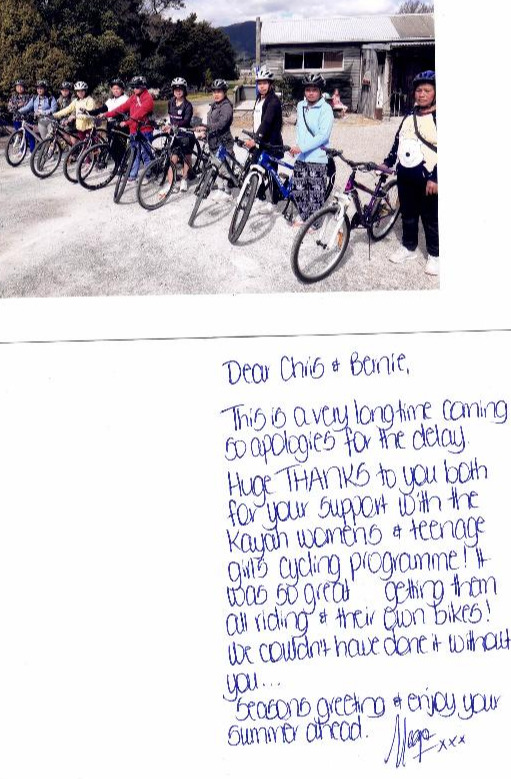 Dear Chris & Bernie,
This is a very long time coming
so apologies for the delay.
Huge THANKS to you both
for your support with the
Kayah womens & teenage
girls cycling programme! It
was so great getting them
all riding & their own bikes!
We couldn't have done it without
you...
Seasons greeting & enjoy your
summer ahead.
xxx